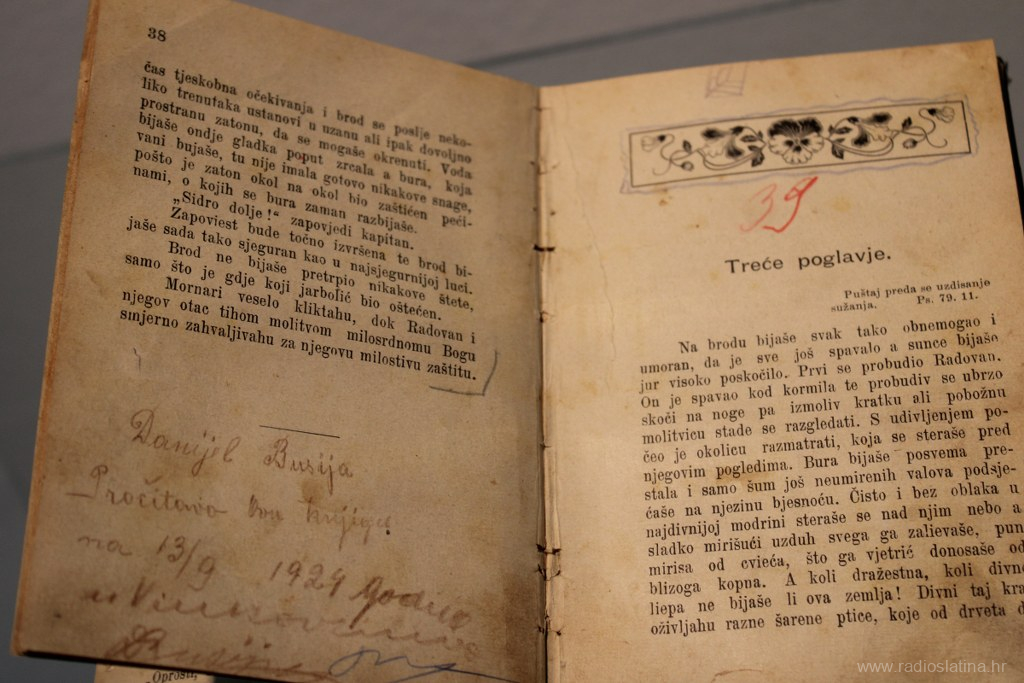 38
čas tjeskobna očekivanja i brod se poslje neko-
liko trenutaka ustanovi u uzanu ali ipak dovoljno
prostranu zatonu, da se mogaše okrenuti. Voda
bijaše ondje gladka poput zrcala a bura, koja
vani bujaše, tu nije imala gotovo nikakove snage,
pošto je zaton okol na okol bio zaštićen peći-
nami, o kojih se bura zaman razbijaše.
„Sidro dolje!“ zapovjedi kapitan.
Zapoviest bude točno izvršena te brod bi-
jaše sada tako sjeguran kao u najsjegurnijoj luci.
Brod ne bijaše pretrpio nikakove štete,
samo što je gdje koji jarbolić bio oštećen.
Mornari veselo kliktahu, dok Radovan i
njegov otac tihom molitvom milosrdnomu Bogu
smjerno zahvaljivahu za njegovu milostivu zaštitu.
Danijel Busija
Pročitavo ovu knjigu
na 13/9 1924 godine
„Oprosti,
39
Treće poglavje.
Puštaj preda se uzdisanje
sužanja. Ps. 79. 11.
Na brodu bijaše svak tako obnemogao i
umoran, da je sve još spavalo a sunce bijaše
jur visoko poskočilo. Prvi se probudio Radovan.
On je spavao kod kormila te probudiv se ubrzo
skoči na noge pa izmoliv kratku ali pobožnu
molitvicu stade se razgledati. S udivljenjem po-
čeo je okolicu razmatrati, koja se steraše pred
njegovim pogledima. Bura bijaše posvema pre-
stala i samo šum još neumirenih valova podsje-
ćaše na njezinu bjesnoću. Čisto i bez oblaka u
najdivnijoj modrini steraše se nad njim nebo a
sladko mirišući uzduh svega ga zalievaše, pun
mirisa od cvieća, što ga vjetrić donosaše od
blizoga kopna. A koli dražestna, koli divno
liepa ne bijaše li ova zemlja! Divni taj kra
oživljahu razne šarene ptice, koje od drveta d
www.radioslatina.hr